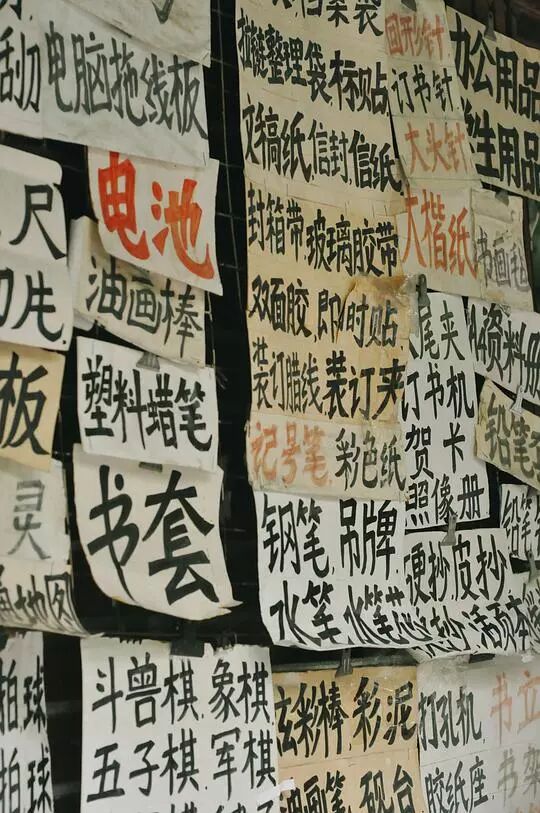 刮刀
电脑拖线板
尺
切片
电池
油画棒
板
塑料蜡笔
书套
灵
地图
拍球
拍球
斗兽棋.象棋
五子棋.军棋
档案袋
拉链整理袋 标贴
文稿纸.信封.信纸
封箱带 玻璃胶带
双面胶,即时贴
装订腊线,装订夹
记号笔,彩色纸
钢笔,吊牌
水笔,水笔芯
回形针
订书针
大头针
大楷纸
办公用品
学生用品
书画毡
尾夹
订书机
贺卡
照像册
A4资料册
铅笔
铅笔
硬抄,皮抄
抄,活页本
炫彩棒 彩泥
油画笔 砚台
打孔机
胶纸座
书立
书架